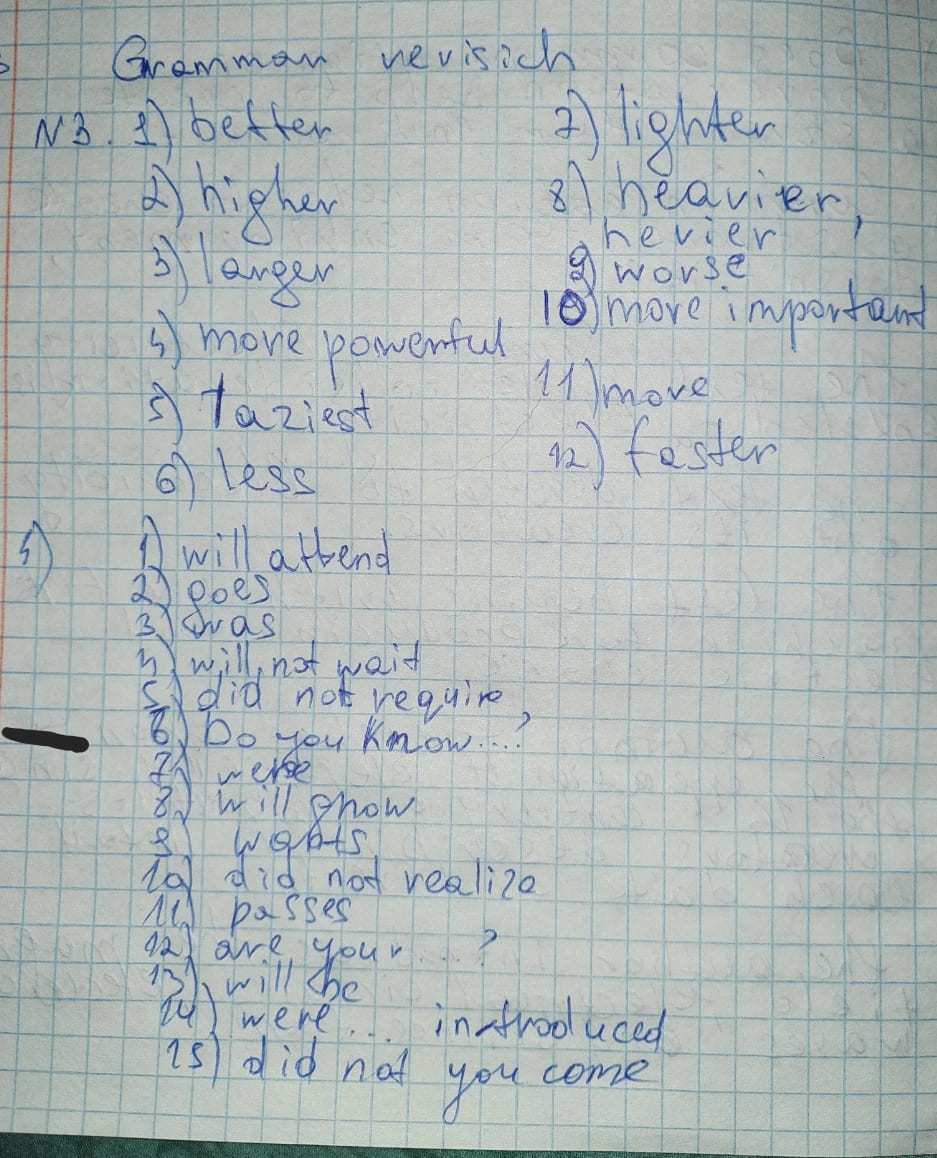 Grammar revisich
N3. 1) better
2) higher
3) larger
4) more powerful
5) laziest
6) less
7) lighter
8) heavier,
hevier
9) worse
10) more important
11) more
12) faster
4) 1) will attend
2) goes
3) was
4) will not wait
5) did not require
6) Do you know...?
7) were
8) will grow
9) wants
10) did not realize
11) passes
12) are your ... ?
13) will be
14) were ... introduced
15) did not you come